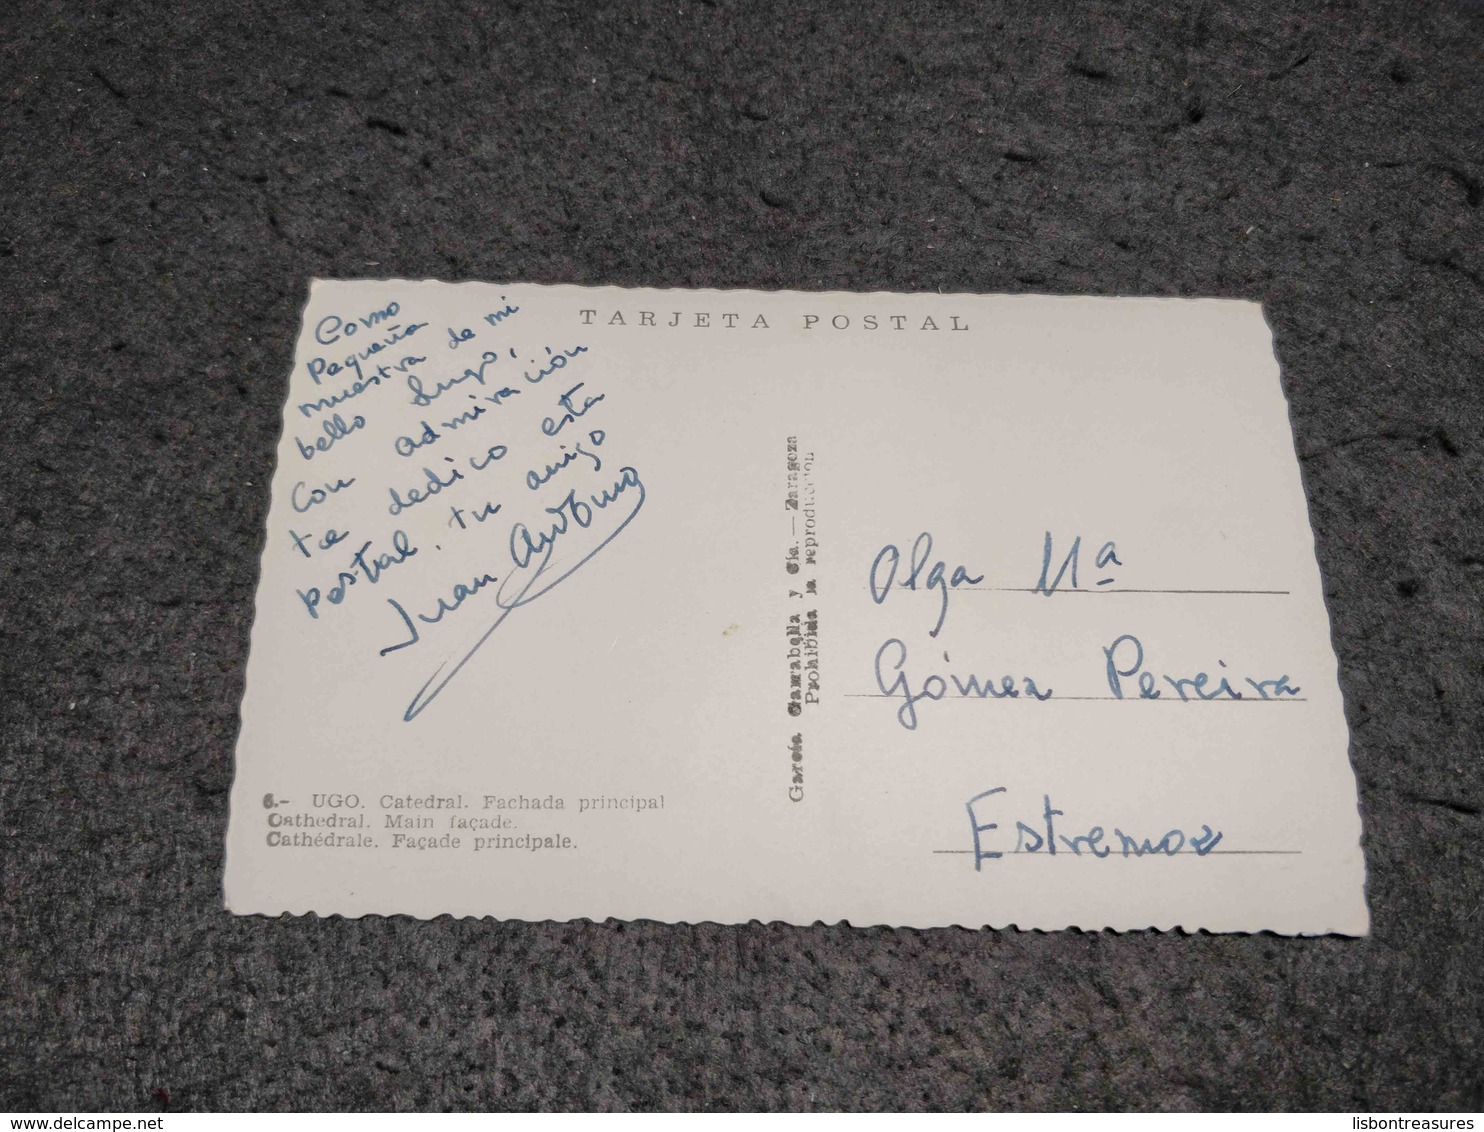 TARJETA POSTAL
Como
pequeña
muestra de mi
bello Lugo,
con admiración
te dedico esta
postal, tu amigo
Juan Antonio
6.- UGO. Catedral. Fachada principal
Cathedral. Main façade.
Cathédrale. Façade principale.
García Garrabella y Cía. — Zaragoza
Prohibida la reproducción
Olga Mª
Gómez Pereira
Estremoz
delcampe.net
lisbontreasures